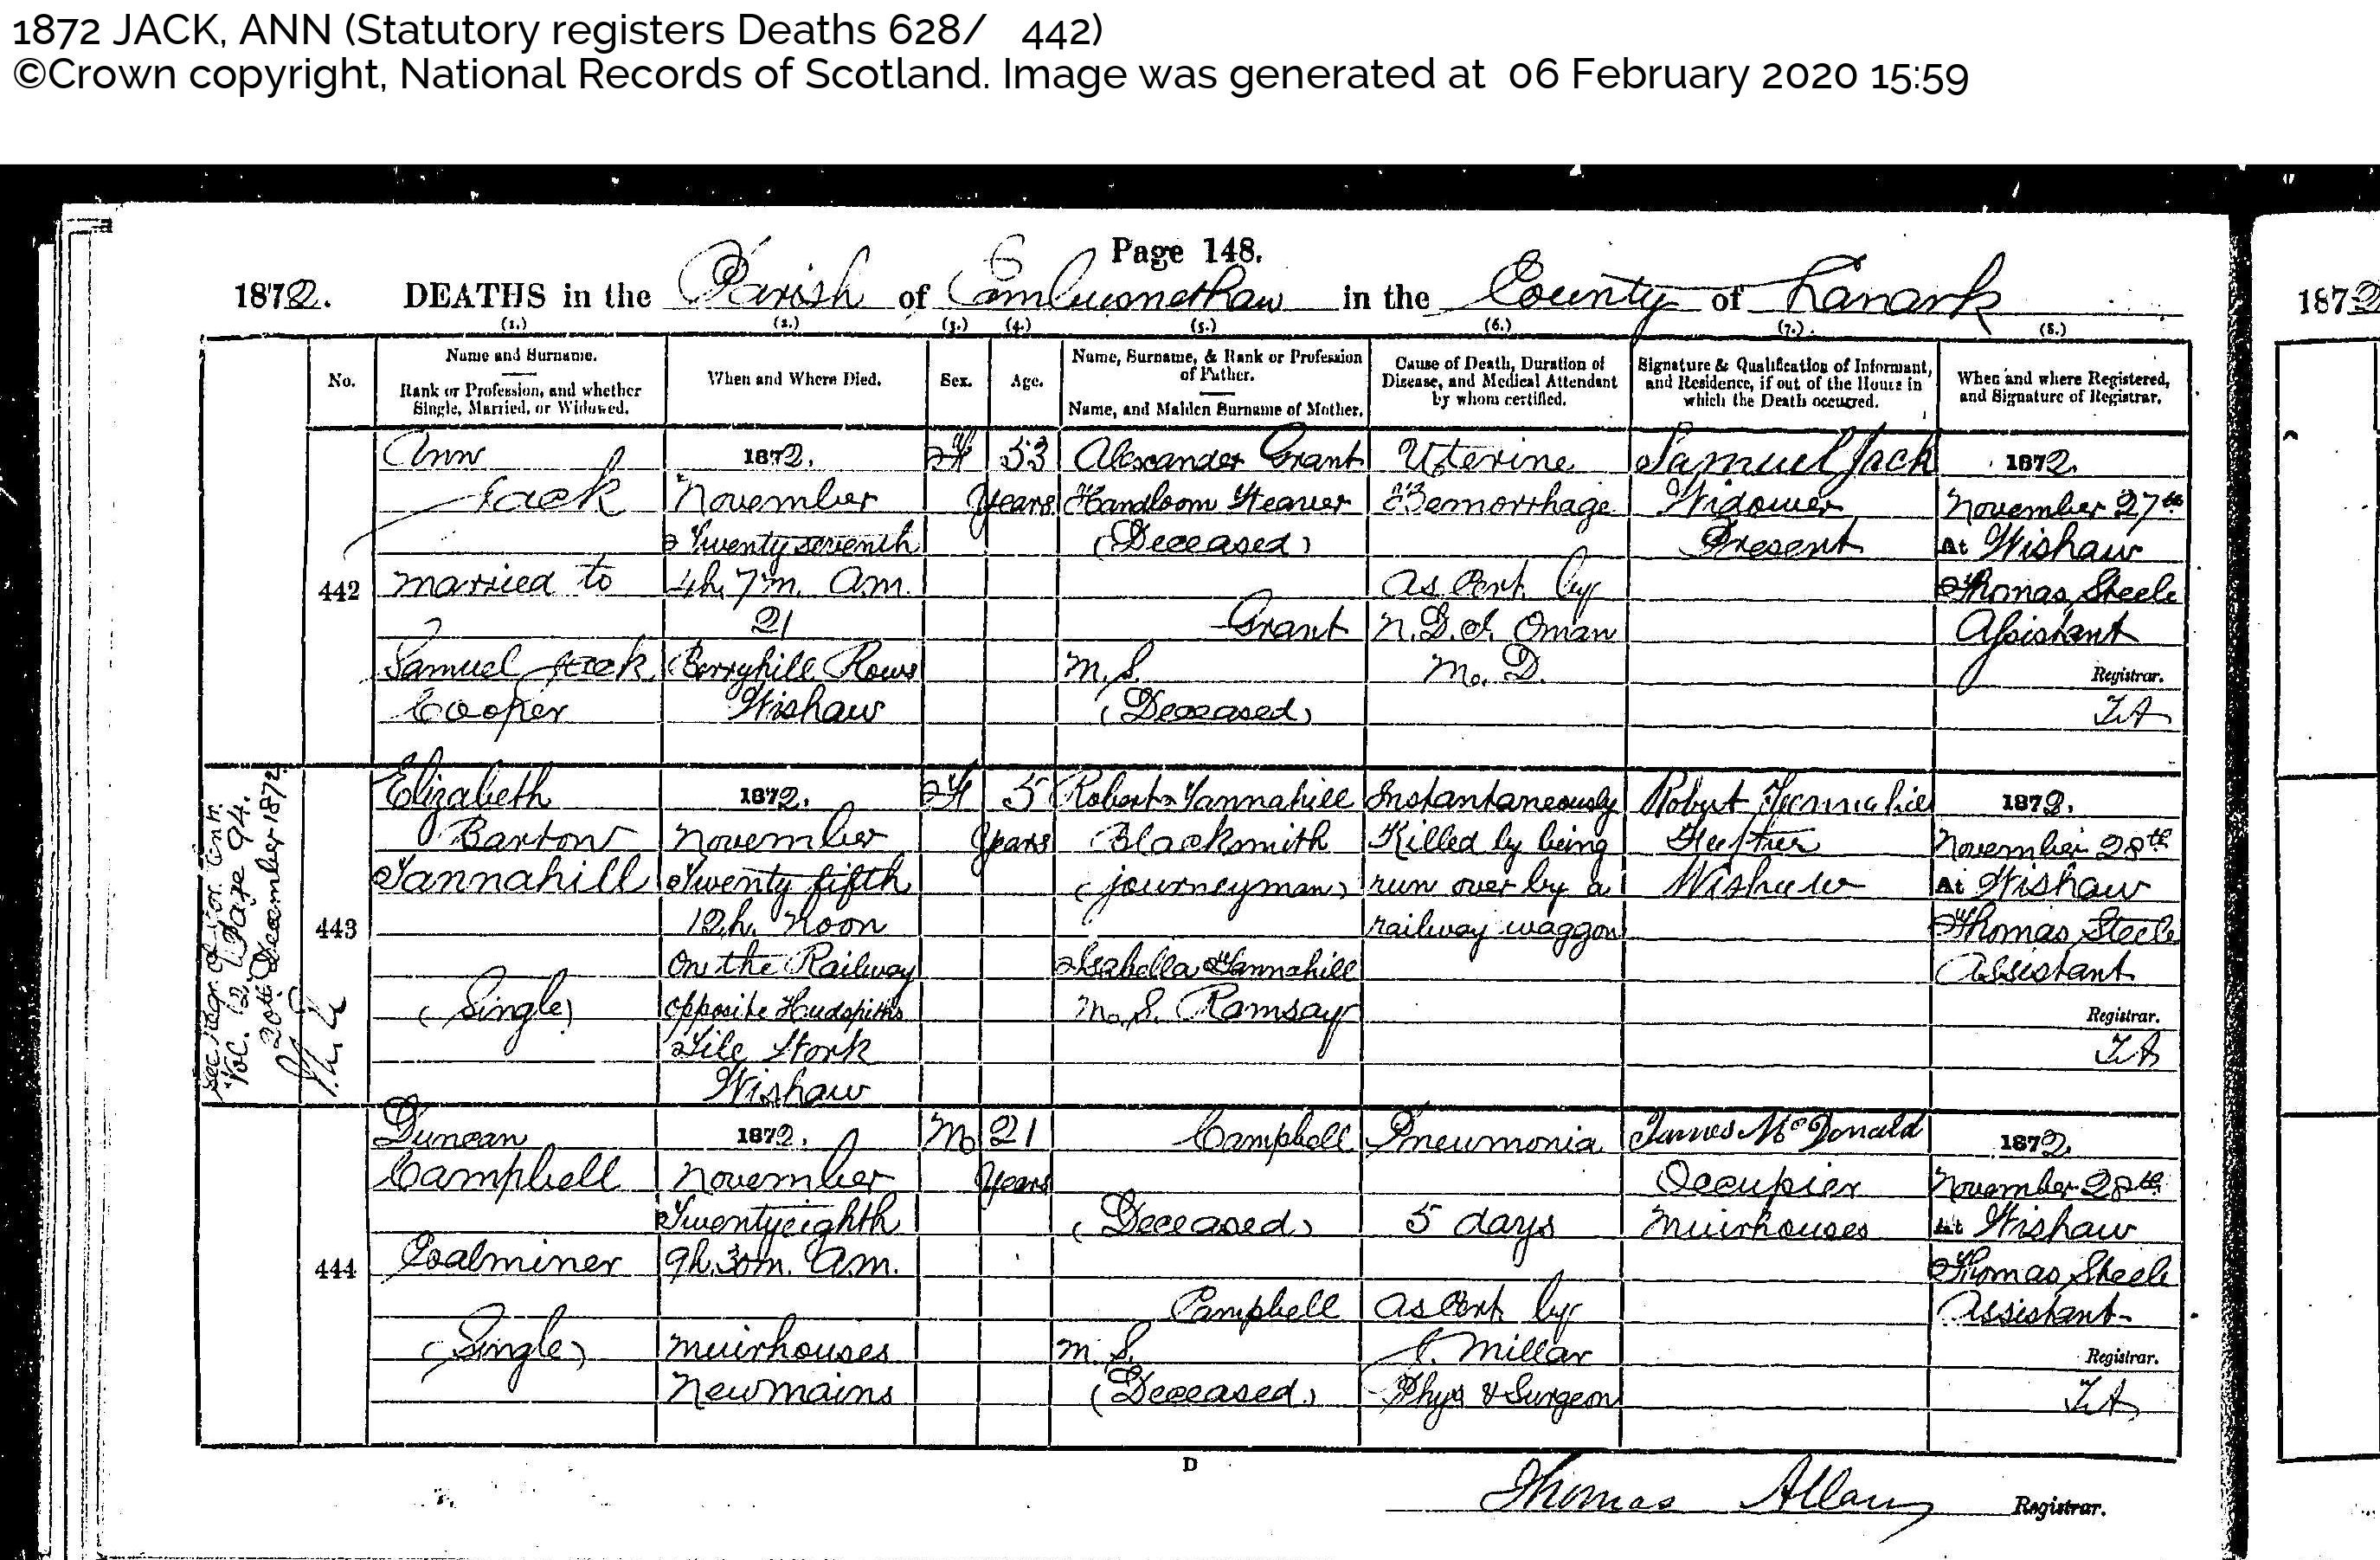 1872 JACK, ANN (Statutory registers Deaths 628/ 442)
©Crown copyright, National Records of Scotland. Image was generated at 06 February 2020 15:59
Page 148.
1872. DEATHS in the Parish of Cambusnethan in the County of Lanark
(1.) (2.) (3.) (4.) (5.) (6.) (7.) (8.)
No.
Name and Surname.
Rank or Profession, and whether
Single, Married, or Widowed.
When and Where Died.
Sex.
Age.
Name, Surname, & Rank or Profession
of Father.
Name, and Maiden Surname of Mother.
Cause of Death, Duration of
Disease, and Medical Attendant
by whom certified.
Signature & Qualification of Informant,
and Residence, if out of the House in
which the Death occurred.
When and where Registered,
and Signature of Registrar.
442
Ann
Jack
married to
Samuel Jack
Cooper
1872.
November
Twenty seventh
4h. 7m. a.m.
21
Berryhill Rows
Wishaw
F
53
Years
Alexander Grant
Handloom Weaver
(Deceased)
Grant
M.S.
(Deceased)
Uterine
Hemorrhage
As Cert. by
Oman
M.D.
Samuel Jack
Widower
Present
1872.
November 27th
At Wishaw
Thomas Steele
Assistant
Registrar.
T.A.
443
Vol. 12, Page 94.
20th December 1872
Elizabeth
Barton
Tannahill
(Single)
1872.
November
Twenty fifth
12h. Noon
On the Railway
opposite Hudspiths
Tile Work
Wishaw
F
5
Years
Robert Tannahill
Blacksmith
(journeyman)
Isabella Tannahill
M.S. Ramsay
Instantaneously
Killed by being
run over by a
railway waggon
Robert Tannahill
Father
Wishaw
1872.
November 28th
At Wishaw
Thomas Steele
Assistant
Registrar.
T.A.
444
Duncan
Campbell
Coalminer
(Single)
1872.
November
Twenty eighth
9h. 30m. a.m.
Muirhouses
Newmains
M
21
Years
Campbell
(Deceased)
Campbell
M.S.
(Deceased)
Pneumonia
5 days
As Cert. by
Millar
Phys & Surgeon
James McDonald
Occupier
Muirhouses
1872.
November 28th
At Wishaw
Thomas Steele
Assistant
Registrar.
T.A.
D
Thomas Allan Registrar.
1872